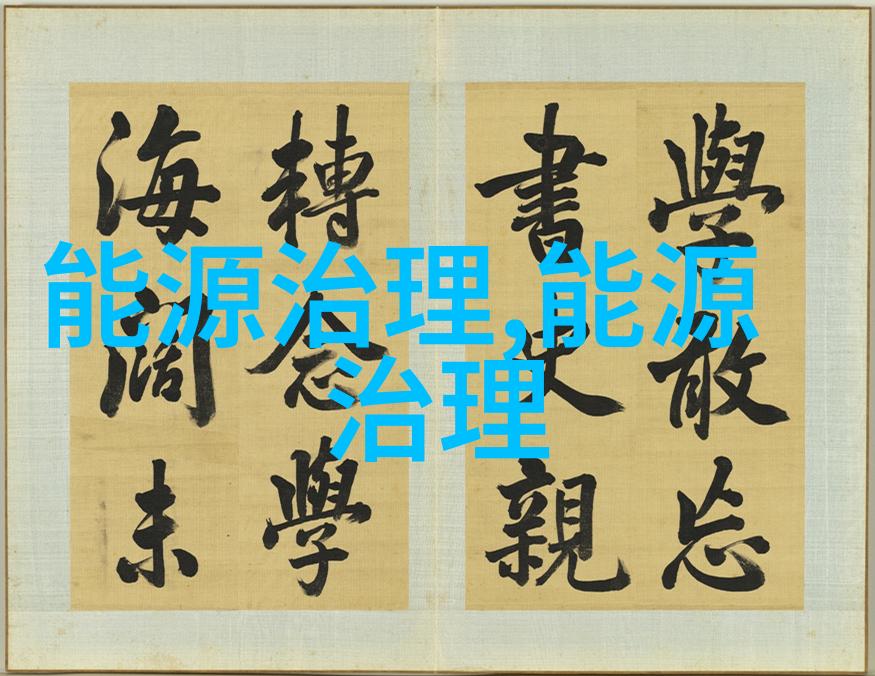 能源治理,能源
治理
學敢忘
書史親
轉念學
海闊未